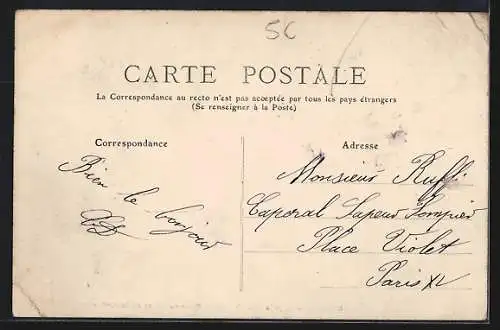 5C
CARTE POSTALE
La Correspondance au recto n'est pas acceptée par tous les pays étrangers
(Se renseigner à la Poste)
Correspondance
Bien le bonjour
Adresse
Monsieur Ruffi
Caporal Sapeur Pompier
Place Violet
Paris XV